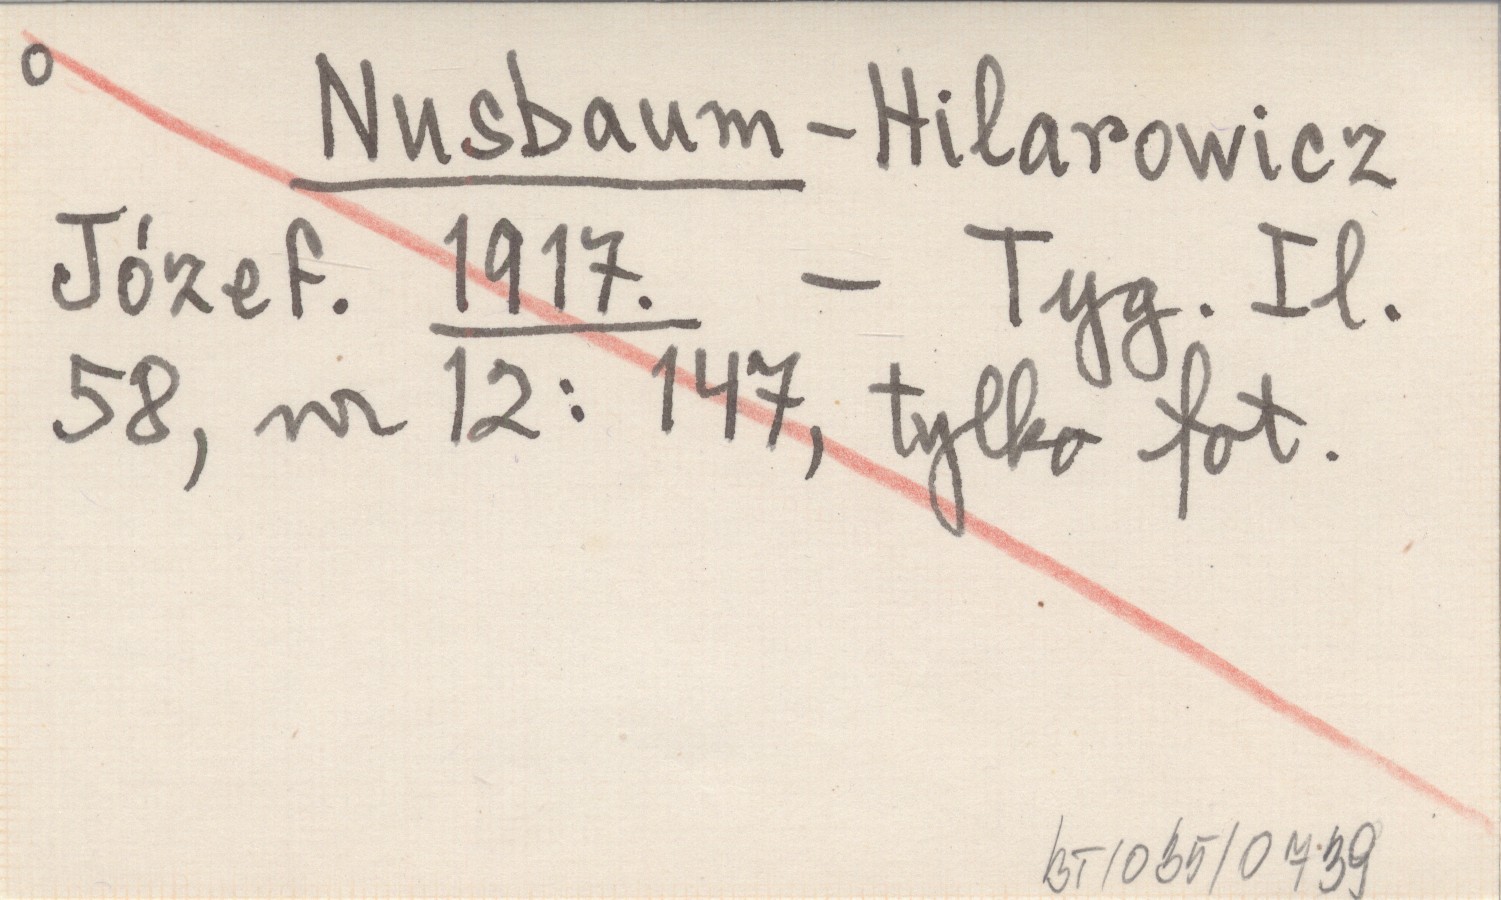 o
Nusbaum-Hilarowicz
Józef. 1917. - Tyg. Il.
58, nr 12: 147, tylko fot.
BT/035/0739